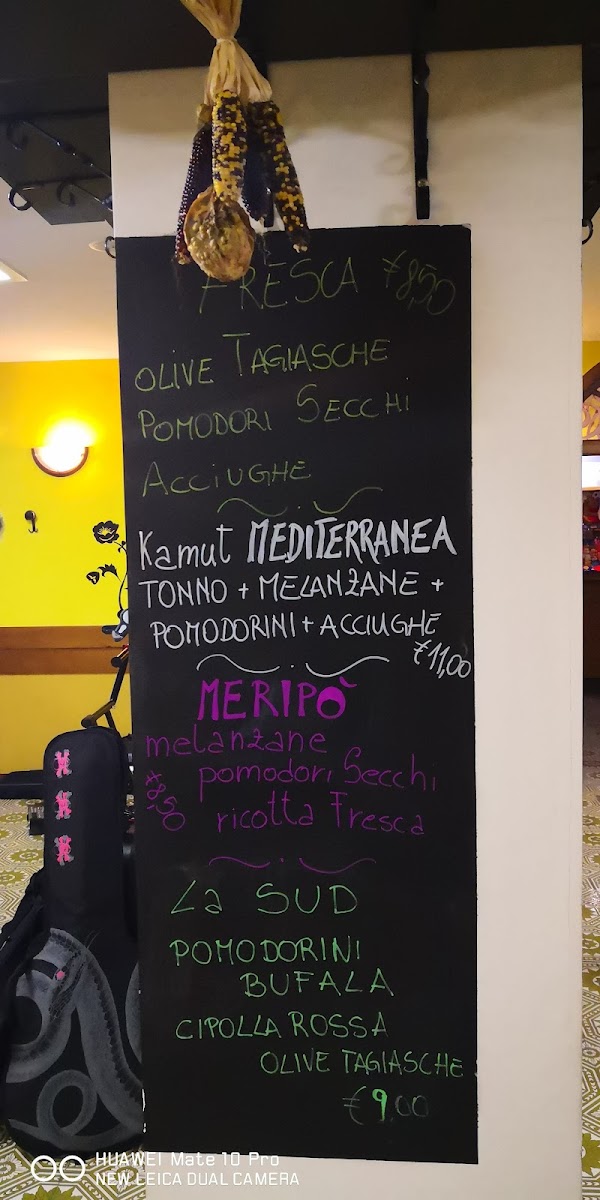 FRESCA €8,50
OLIVE TAGIASCHE
POMODORI SECCHI
ACCIUGHE
Kamut MEDITERRANEA
TONNO + MELANZANE +
POMODORINI + ACCIUGHE
€11,00
MERIPÒ
melanzane
pomodori Secchi
€8,50
ricotta Fresca
La SUD
POMODORINI
BUFALA
CIPOLLA ROSSA
OLIVE TAGIASCHE
€9,00
HUAWEI Mate 10 Pro
NEW LEICA DUAL CAMERA